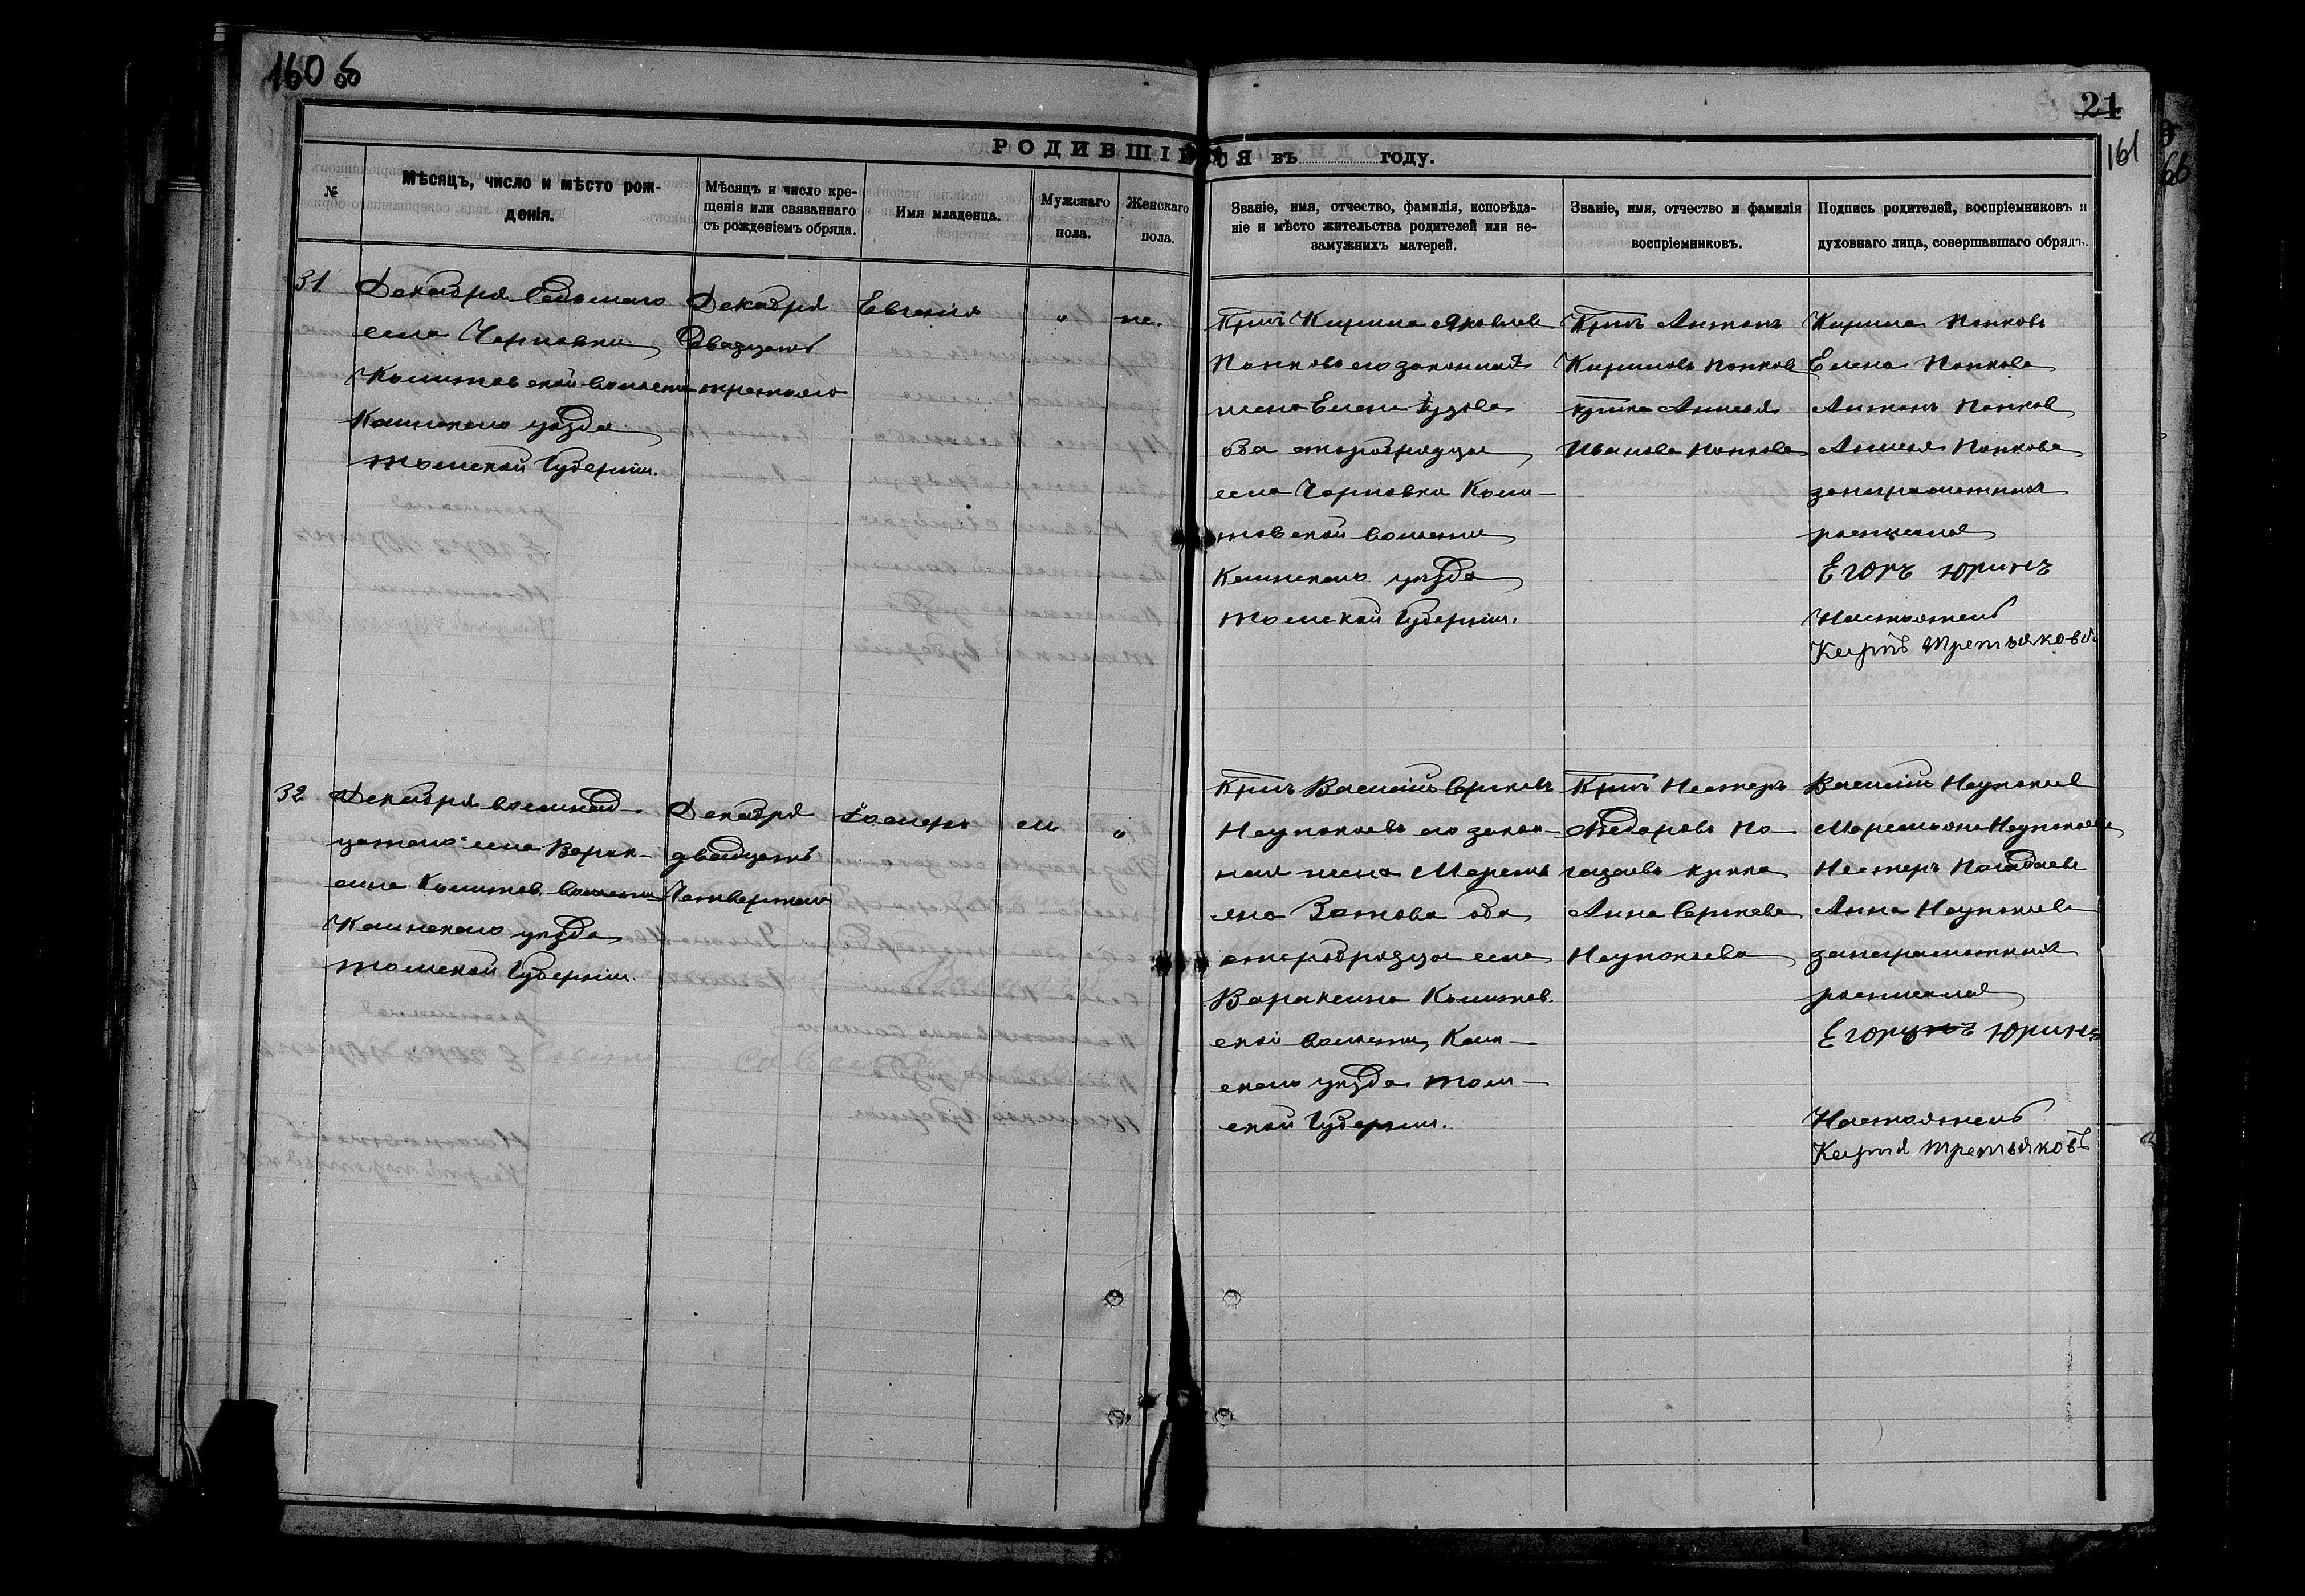 160 об
21
161
66
РОДИВШІЕСЯ въ году.
№
Мѣсяцъ, число и мѣсто рож-
денія.
Мѣсяцъ и число кре-
щенія или связаннаго
съ рожденіемъ обряда.
Имя младенца.
Мужскаго
пола.
Женскаго
пола.
Званіе, имя, отчество, фамилія, исповѣда-
ніе и мѣсто жительства родителей или не-
замужнихъ матерей.
Званіе, имя, отчество и фамилія
воспріемниковъ.
Подпись родителей, воспріемниковъ и
духовнаго лица, совершавшаго обрядъ.
31.
Декабря Седьмаго
села Черновки
волости
Каинскаго уѣзда
Томской Губерніи.
Декабря
Двадцать
третьяго
Евгенія
"
же.
Крн Кирила Яковлев
Попковъ его законная
жена Елена
оба старобрядцы
села Черновки
волости
Каинскаго уѣзда
Томской Губерніи.
Крнъ Антонъ
Кириловъ Попков
крнка
Иванова Попкова
Кирила Попковъ
Елена Попкова
Антонъ Попков
Попкова
занеграмотных
росписался
Егоръ Юринъ
Настоятель
Третьяковъ
32
Декабря восемнад-
цатаго села Варак-
сина волости
Каинскаго уѣзда
Томской Губерніи.
Декабря
двадцать
Четвертаго
м
"
Крнъ Василій
Неупокоевъ его закон-
ная жена
Зотова оба
старобрядцы села
Вараксина
ской волости, Каин-
скаго уѣзда Том-
ской Губерніи.
Крнъ Нестеръ
Федоровъ По-
гадаевъ крнка
Анна Сергѣева
Неупокоева
Василій Неупокоев
Неупокоева
Нестеръ Погадаевъ
Анна Неупокоева
занеграмотных
росписался
Егоръ Юринъ
Настоятель
Третьяковъ